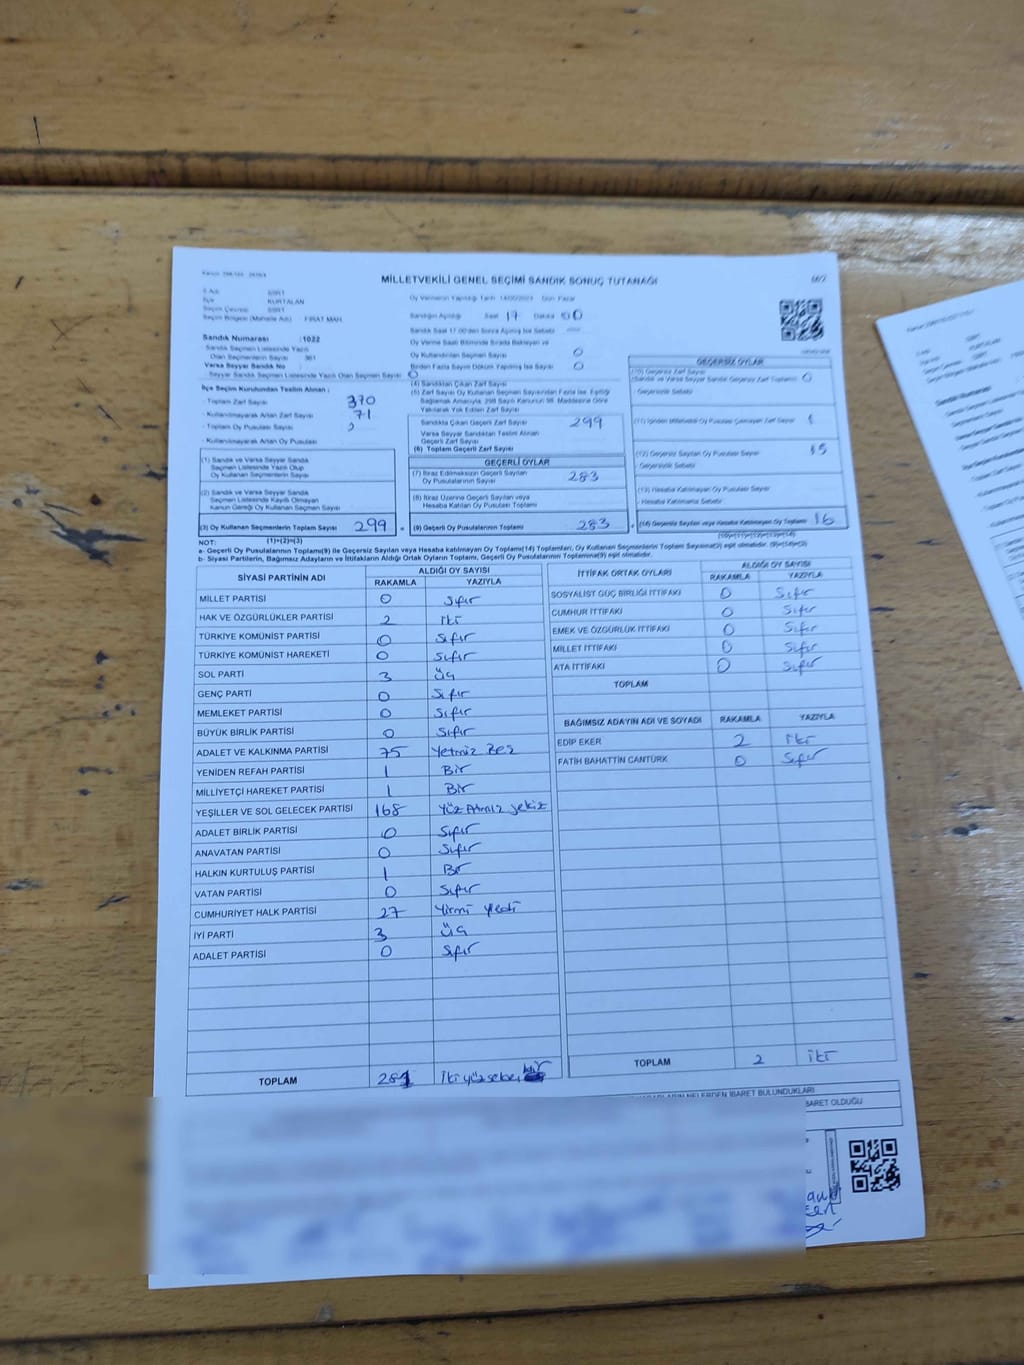 MİLLETVEKİLİ GENEL SEÇİMİ SANDIK SONUÇ TUTANAĞI
İli Adı SİİRT
İlçe KURTALAN
Seçim Çevresi SİİRT
Seçim Bölgesi (Mahalle Adı) FIRAT MAH.
Oy Vermenin Yapıldığı Tarih 14/05/2023 Gün Pazar
Sandığın Açıldığı Saat 17 Dakika 00
Sandık Saat 17.00'den Sonra Açılmış İse Sebebi
Oy Verme Saati Bitiminde Sırada Bekleyen ve
Oy Kullandırılan Seçmen Sayısı 0
Birden Fazla Sayım Döküm Yapılmış İse Sayısı 0
Sandık Numarası :1022
Sandık Seçmen Listesinde Yazılı
Olan Seçmenlerin Sayısı 361
Varsa Seyyar Sandık No
Seyyar Sandık Seçmen Listesinde Yazılı Olan Seçmen Sayısı 0
İlçe Seçim Kurulundan Teslim Alınan ;
Toplam Zarf Sayısı 370
Kullanılmayarak Artan Zarf Sayısı 71
Toplam Oy Pusulası Sayısı
Kullanılmayarak Artan Oy Pusulası
(1) Sandık ve Varsa Seyyar Sandık
Seçmen Listesinde Yazılı Olup
Oy Kullanan Seçmenlerin Sayısı
(2) Sandık ve Varsa Seyyar Sandık
Seçmen Listesinde Kayıtlı Olmayan
Kanun Gereği Oy Kullanan Seçmenlerin Sayısı
(3) Oy Kullanan Seçmenlerin Toplam Sayısı 299
(1)+(2)=(3)
(4) Sandıktan Çıkan Zarf Sayısı
(5) Zarf Sayısı Oy Kullanan Seçmen Sayısından Fazla İse, Eşitliği
Sağlamak Amacıyla, 298 Sayılı Kanunun 98. Maddesine Göre
Yakılarak Yok Edilen Zarf Sayısı
Sandıkta Çıkan Geçerli Zarf Sayısı 299
Varsa Seyyar Sandıktan Teslim Alınan
Geçerli Zarf Sayısı
(6) Toplam Geçerli Zarf Sayısı
GEÇERLİ OYLAR
(7) İtiraz Edilmeksizin Geçerli Sayılan
Oy Pusulalarının Sayısı 283
(8) İtiraz Üzerine Geçerli Sayılan veya
Hesaba Katılan Oy Pusulası Sayısı
(9) Geçerli Oy Pusulalarının Toplamı 283
GEÇERSİZ OYLAR
(10) Geçersiz Zarf Sayısı
(Sandık ve Varsa Seyyar Sandık Geçersiz Zarf Toplamı) 0
Geçersizlik Sebebi
(11) İçinden Milletvekili Oy Pusulası Çıkmayan Zarf Sayısı 1
(12) Geçersiz Oy Pusulası Sayısı 15
Geçersizlik Sebebi
(13) Hesaba Katılmayan Oy Pusulası Sayısı
Hesaba Katılmama Sebebi
(14) Geçersiz Sayılan veya Hesaba Katılmayan Oy Toplamı 16
(10)+(11)+(12)+(13)=(14)
NOT:
a- Geçerli Oy Pusulalarının Toplamı(9) ile Geçersiz Sayılan veya Hesaba katılmayan Oy Toplamı(14) Toplamları, Oy Kullanan Seçmenlerin Toplam Sayısına(3) eşit olmalıdır. (9)+(14)=(3)
b- Siyasi Partilerin, Bağımsız Adayların ve İttifakların Aldığı Ortak Oyların Toplamı, Geçerli Oy Pusulalarının Toplamına(9) eşit olmalıdır.
SİYASİ PARTİNİN ADI ALDIĞI OY SAYISI
RAKAMLA YAZIYLA
MİLLET PARTİSİ 0 Sıfır
HAK VE ÖZGÜRLÜKLER PARTİSİ 2 İki
TÜRKİYE KOMÜNİST PARTİSİ 0 Sıfır
TÜRKİYE KOMÜNİST HAREKETİ 0 Sıfır
SOL PARTİ 3 Üç
GENÇ PARTİ 0 Sıfır
MEMLEKET PARTİSİ 0 Sıfır
BÜYÜK BİRLİK PARTİSİ 0 Sıfır
ADALET VE KALKINMA PARTİSİ 75 Yetmiş Beş
YENİDEN REFAH PARTİSİ 1 Bir
MİLLİYETÇİ HAREKET PARTİSİ 1 Bir
YEŞİLLER VE SOL GELECEK PARTİSİ 168 Yüz Atmış Sekiz
ADALET BİRLİK PARTİSİ 0 Sıfır
ANAVATAN PARTİSİ 0 Sıfır
HALKIN KURTULUŞ PARTİSİ 1 Bir
VATAN PARTİSİ 0 Sıfır
CUMHURİYET HALK PARTİSİ 27 Yirmi Yedi
İYİ PARTİ 3 Üç
ADALET PARTİSİ 0 Sıfır
TOPLAM 281 İki yüz seksen bir
İTTİFAK ORTAK OYLARI ALDIĞI OY SAYISI
RAKAMLA YAZIYLA
SOSYALİST GÜÇ BİRLİĞİ İTTİFAKI 0 Sıfır
CUMHUR İTTİFAKI 0 Sıfır
EMEK VE ÖZGÜRLÜK İTTİFAKI 0 Sıfır
MİLLET İTTİFAKI 0 Sıfır
ATA İTTİFAKI 0 Sıfır
TOPLAM
BAĞIMSIZ ADAYIN ADI VE SOYADI RAKAMLA YAZIYLA
EDİP EKER 2 İki
FATİH BAHATTİN CANTÜRK 0 Sıfır
TOPLAM 2 İki
NELERDEN İBARET BULUNDUKLARI
İBARET OLDUĞU